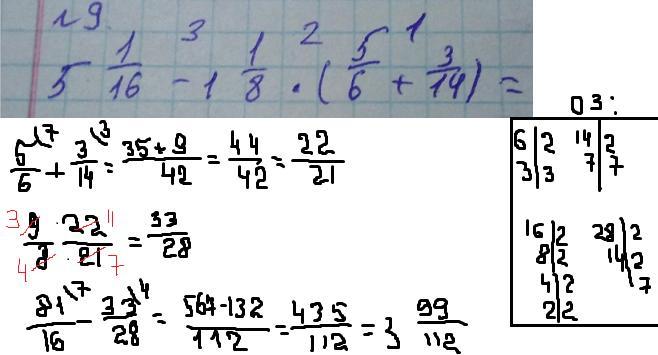 №9.
3 2 1
5 1/16 - 1 1/8 · (5/6 + 3/14) =
5/6 \7 + 3/14 \3 = 35+9/42 = 44/42 = 22/21
3 9/8 4 · 22 11/21 7 = 33/28
81/16 \7 - 33/28 \4 = 567-132/112 = 435/112 = 3 99/112
ОЗ:
6|2 14|2
3|3 7|7
16|2 28|2
8|2 14|2
4|2 7
2|2